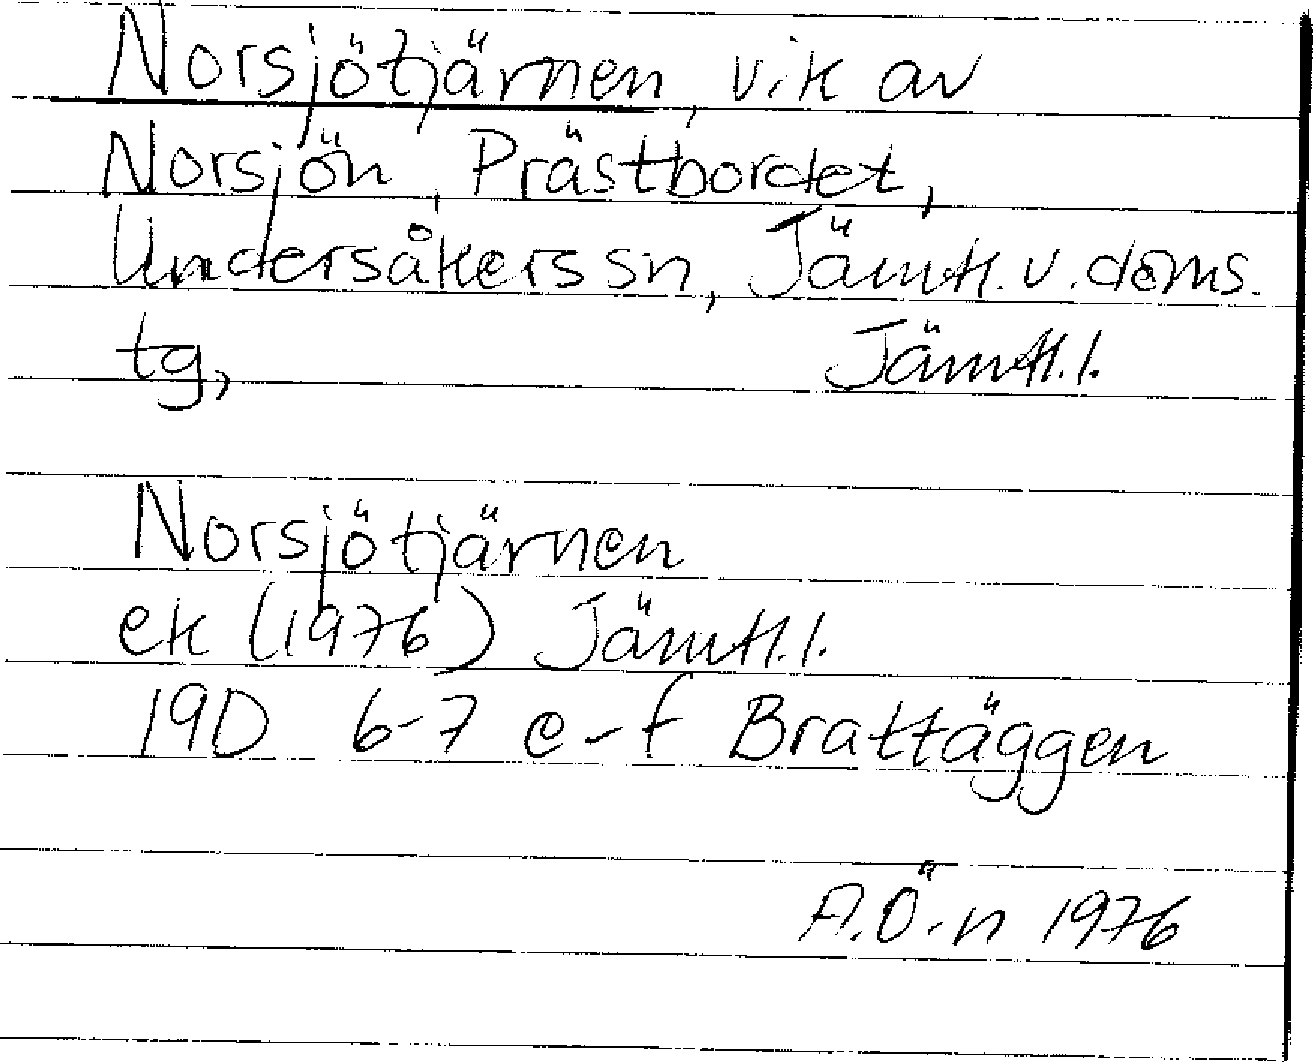 Norsjötjärnen, vik av
Norsjön, Prästbordet,
Undersåkers sn, Jämtl. v. doms.
tg, Jämtl. l.
Norsjötjärnen
ek (1976) Jämtl. l.
19D 6-7 e-f Brattäggen
A.Ö-n 1976